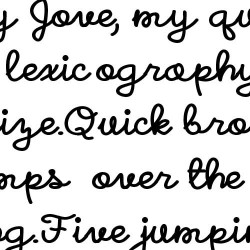 y Jove, my qu
lexicography
ize.Quick bro
mps over the
og.Five jumpi